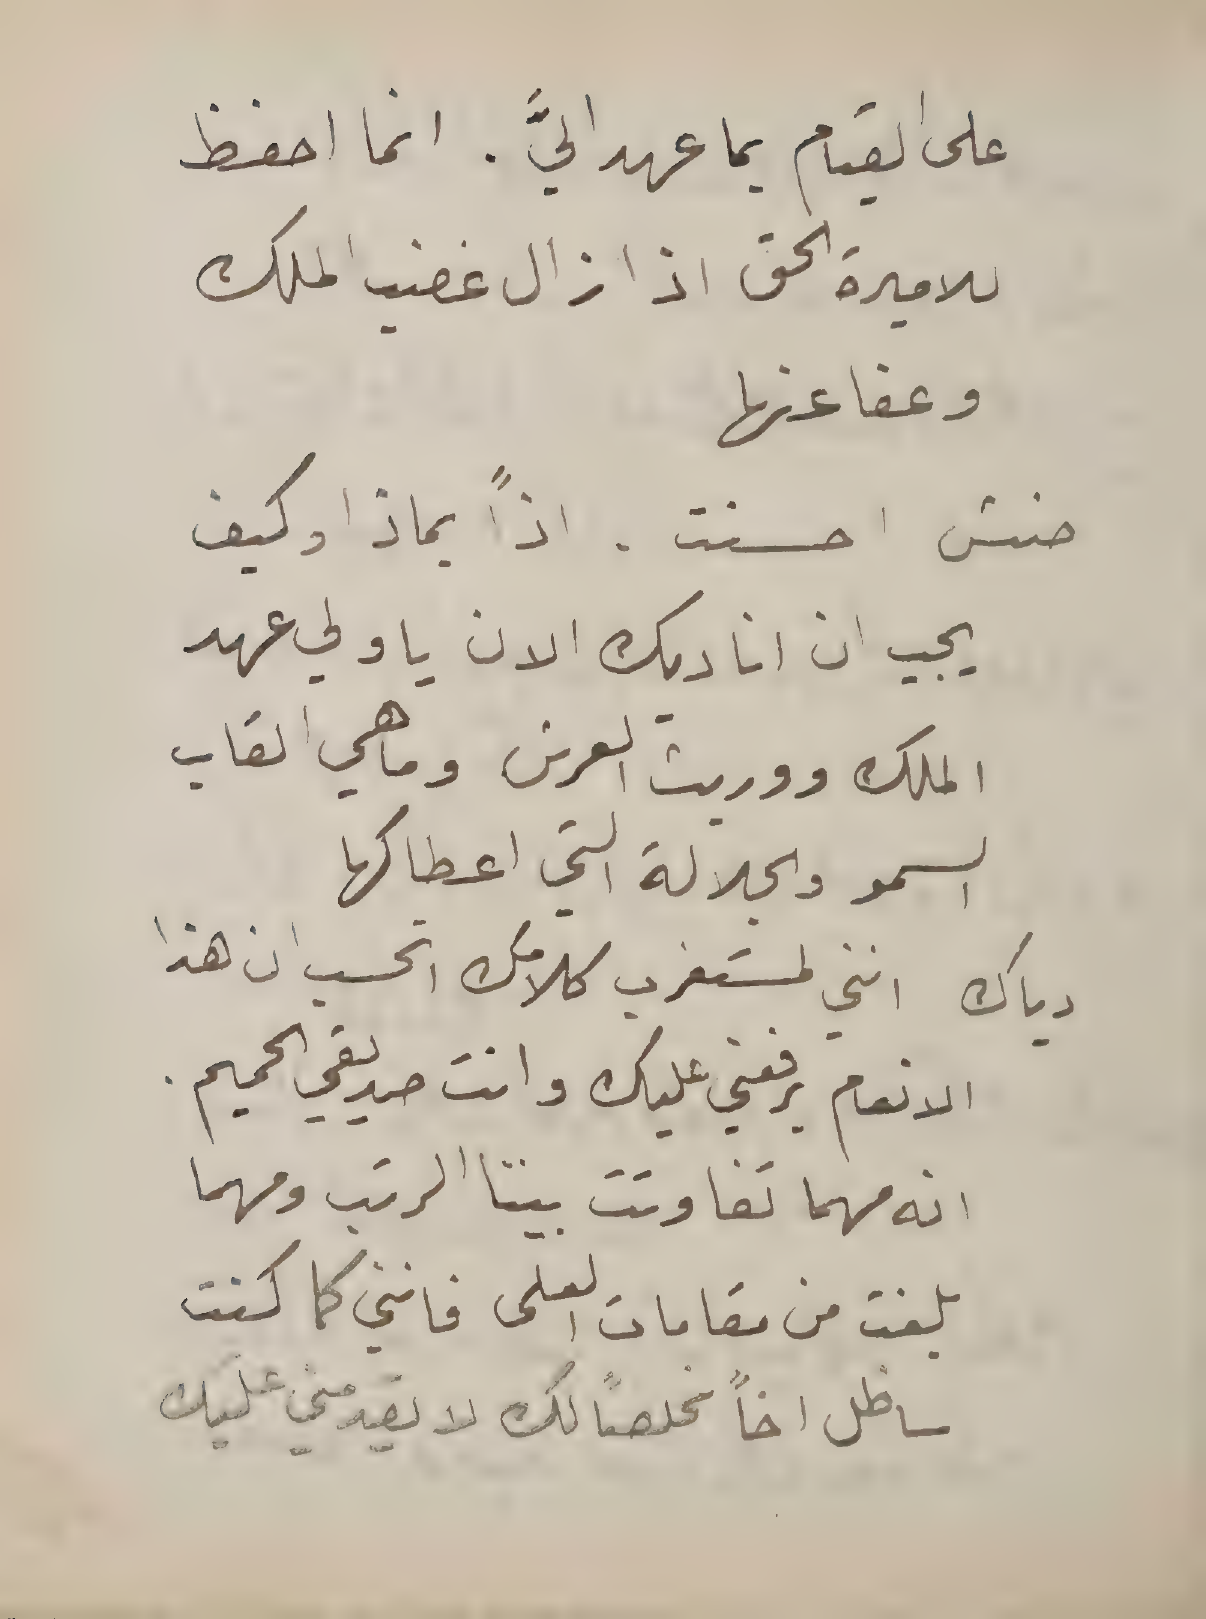 على القيام بما عهد اليَّ . انما احفظ
للاميرة الحق اذا زال غضب الملك
وعفا عنها
حنش احسنت . اذاً بماذا وكيف
يجب ان اناديك الان يا ولي عهد
الملك ووريث العرش وما هي القاب
السمو والجلالة التي اعطاكها
دياك انني لمستغرب كلامك اتحسب ان هذا
الانعام يرفعني عليك وانت صديقي الحميم .
انه مهما تفاوتت بيننا الرتب ومهما
بلغت من مقامات العلى فانني كما كنت
ساظل اخاً مخلصاً لك لا عليك